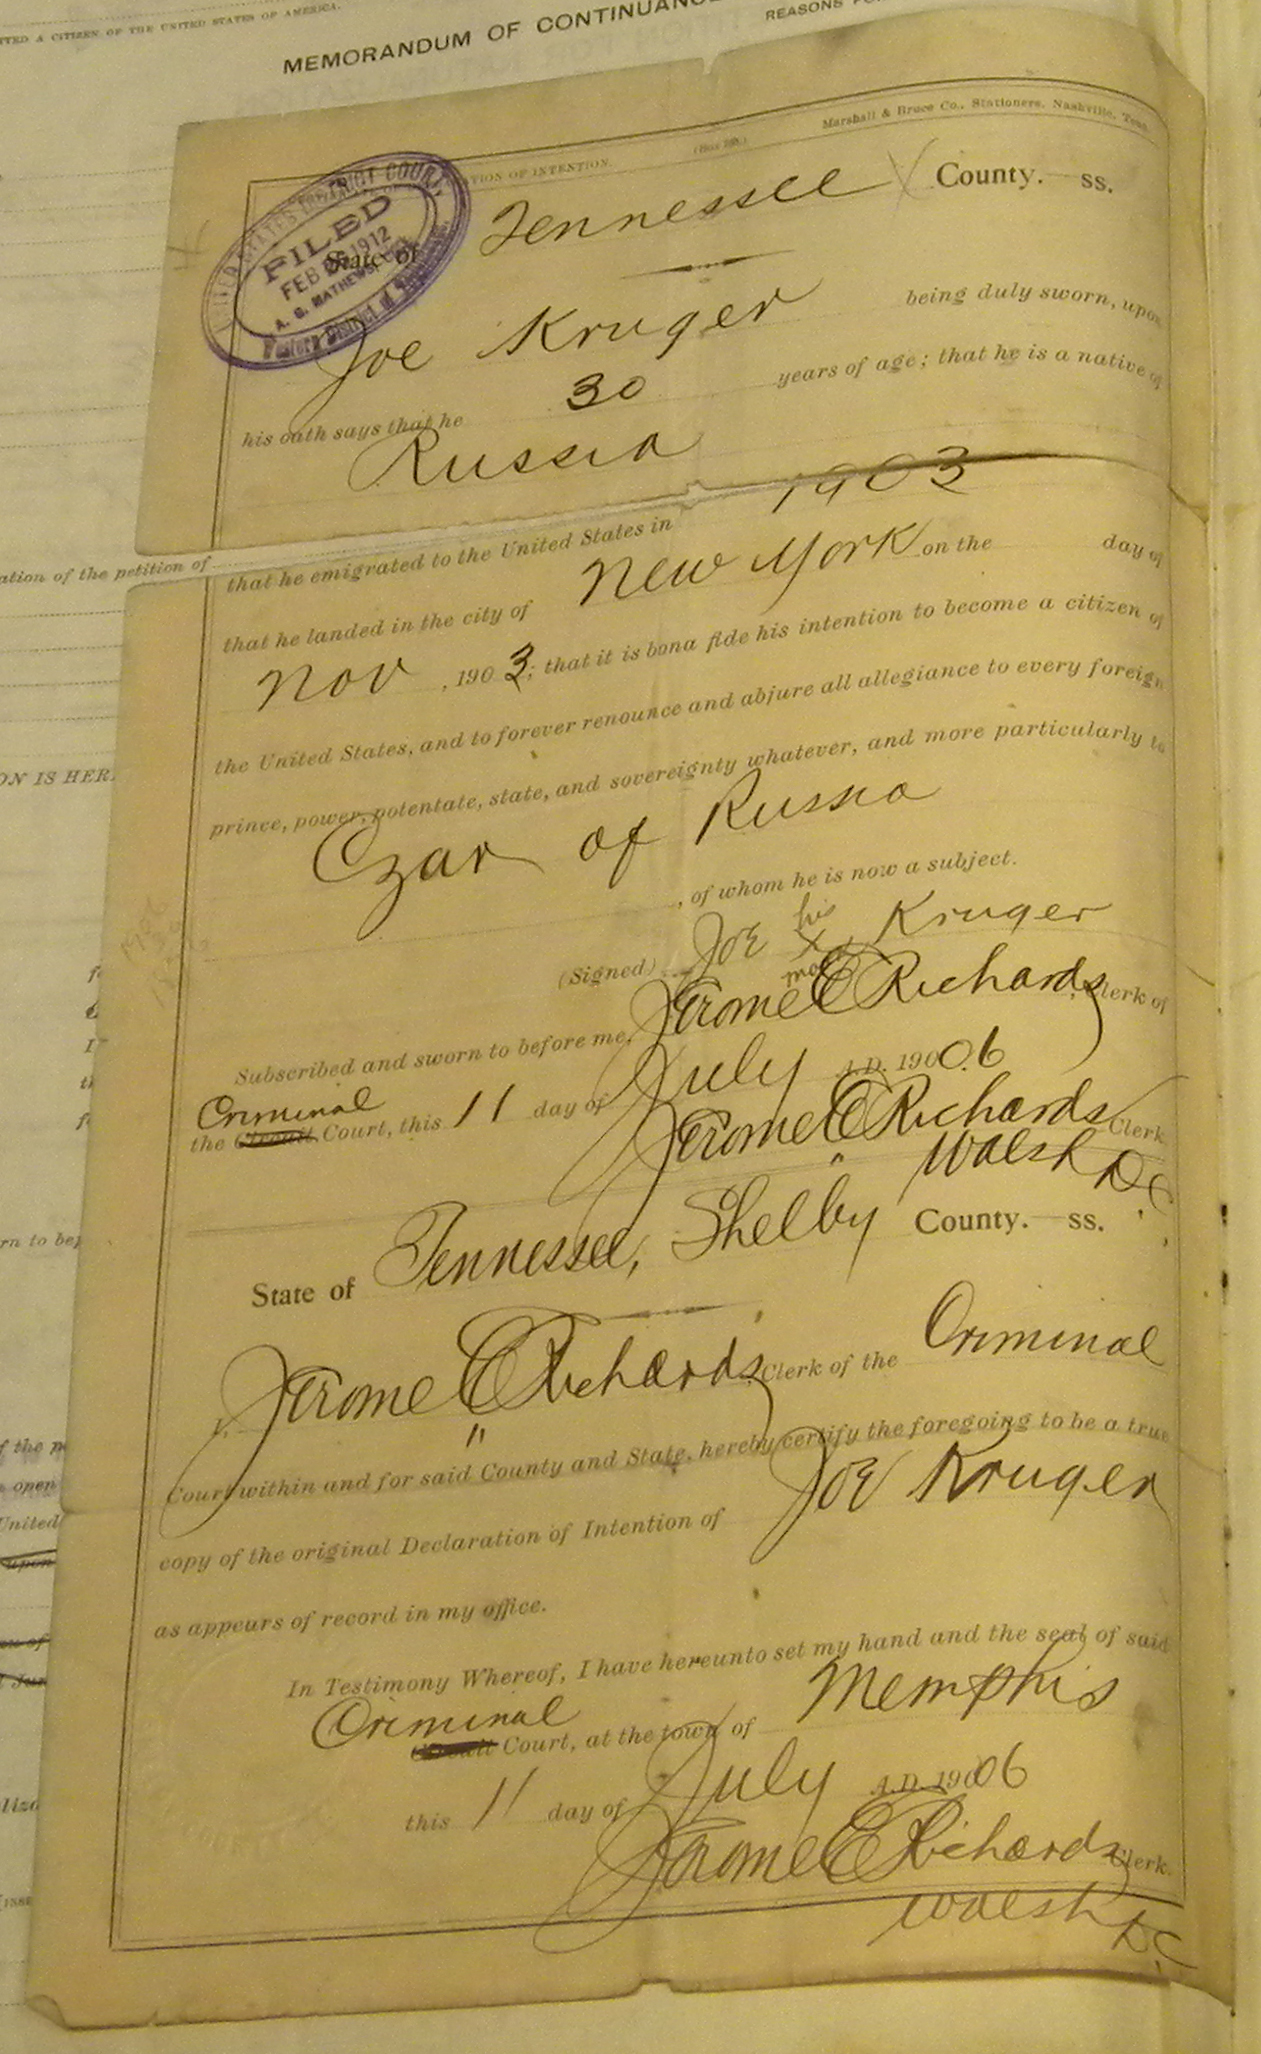 TTED A CITIZEN OF THE UNITED STATES OF AMERICA.
MEMORANDUM OF CONTINUANCE
REASONS FO
Marshall & Bruce Co., Stationers, Nashville, Tenn.
TION OF INTENTION.
UNITED STATES DISTRICT COURT
FILED
FEB 1912
A. G. MATHEWS,
Western District of
State of Tennessee X County. ss.
Joe Kruger being duly sworn, upon
his oath says that he 30 years of age; that he is a native of
Russia
that he emigrated to the United States in 1903
ation of the petition of
that he landed in the city of New York on the day of
Nov , 1903; that it is bona fide his intention to become a citizen of
the United States, and to forever renounce and abjure all allegiance to every foreign
ON IS HER
prince, power, potentate, state, and sovereignty whatever, and more particularly to
Czar of Russia
, of whom he is now a subject.
(Signed) Joe his X mark Kruger
Subscribed and sworn to before me, Jerome E Richards, Clerk of
Criminal
the Circuit Court, this 11 day of July A.D. 19006
Jerome E Richards Clerk
Walsh D.C.
rn to be
State of Tennessee, Shelby County. ss.
Jerome E Richards, Clerk of the Criminal
Court within and for said County and State, hereby certify the foregoing to be a true
copy of the original Declaration of Intention of Joe Kruger
as appears of record in my office.
of the
open
United
upon
In Testimony Whereof, I have hereunto set my hand and the seal of said
Criminal
Circuit Court, at the town of Memphis
this 11 day of July A.D. 19006
Jerome E Richards Clerk.
Walsh D.C.